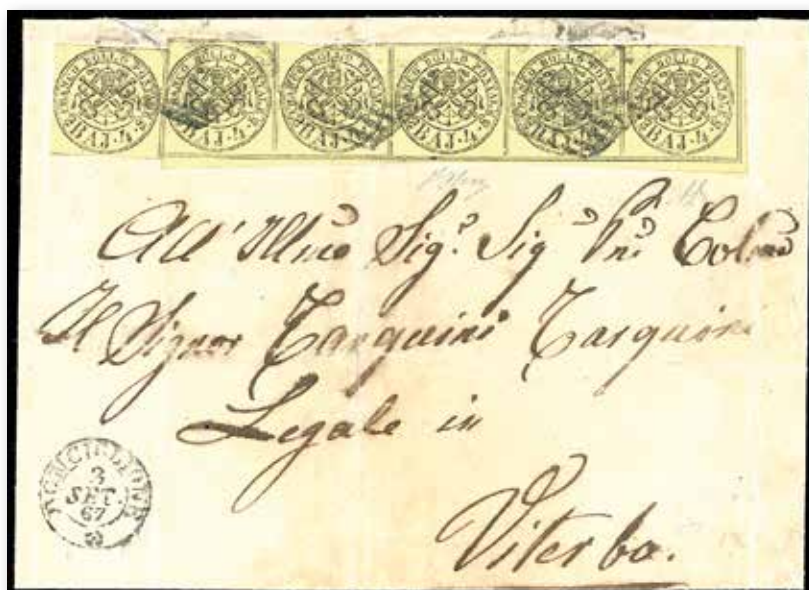 FRANCO BOLLO POSTALE BAJ. 4.
FRANCO BOLLO POSTALE BAJ. 4.
FRANCO BOLLO POSTALE BAJ. 4.
FRANCO BOLLO POSTALE BAJ. 4.
FRANCO BOLLO POSTALE BAJ. 4.
FRANCO BOLLO POSTALE BAJ. 4.
All' Illmo Sig. Sig
Il Signor Tarquini Tarquini
Legale in
RONCIGLIONE
3
SET.
67
Viterbo.